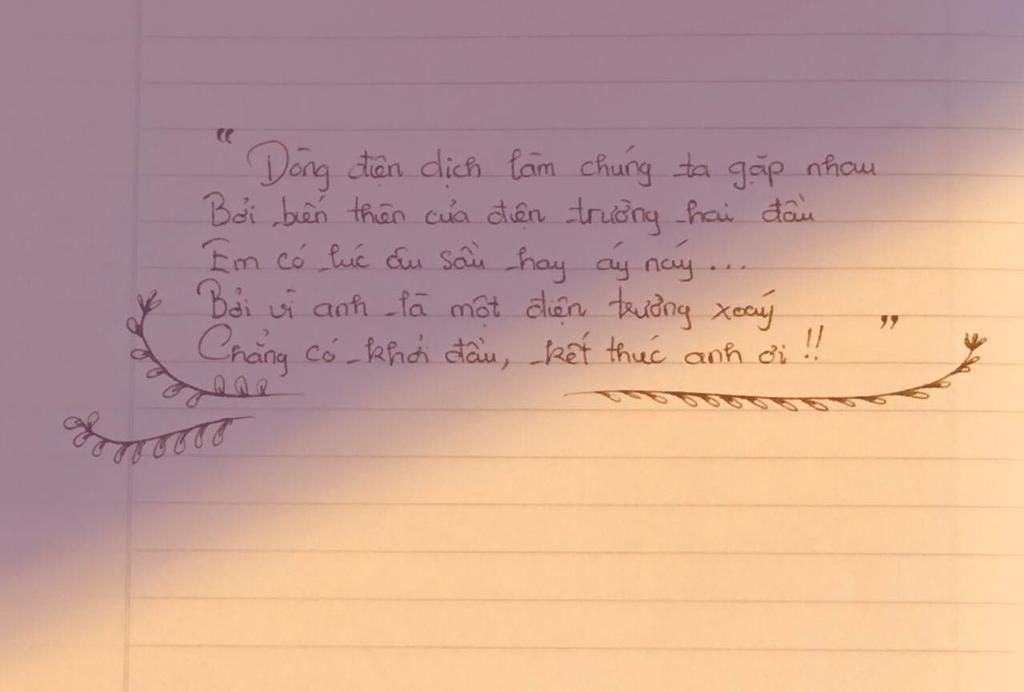 “ Dòng điện dịch làm chúng ta gặp nhau
Bởi biến thiên của điện trường hai đầu
Em có lúc âu sầu hay áy náy...
Bởi vì anh là một điện trường xoáy
Chẳng có khởi đầu, kết thúc anh ơi !! ”